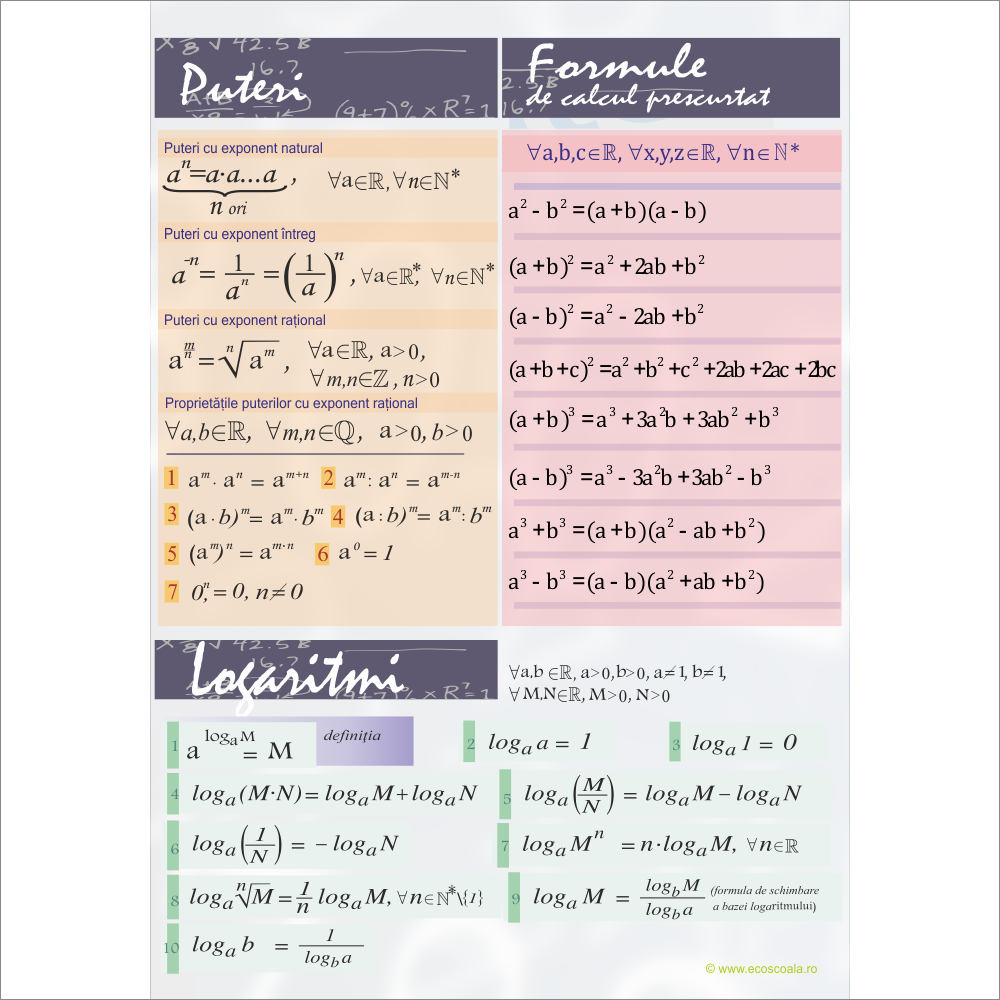 Puteri
Puteri cu exponent natural
aⁿ=a·a...a , ∀a∈ℝ, ∀n∈ℕ*
n ori
Puteri cu exponent întreg
a⁻ⁿ = 1/aⁿ = (1/a)ⁿ , ∀a∈ℝ*, ∀n∈ℕ*
Puteri cu exponent rațional
a^(m/n) = ⁿ√(a^m) , ∀a∈ℝ, a>0,
∀m,n∈ℤ, n>0
Proprietățile puterilor cu exponent rațional
∀a,b∈ℝ, ∀m,n∈ℚ, a>0, b>0
1 a^m · a^n = a^(m+n) 2 a^m : a^n = a^(m-n)
3 (a·b)^m = a^m·b^m 4 (a:b)^m = a^m:b^m
5 (a^m)^n = a^(m·n) 6 a^0 = 1
7 0,^n = 0, n≠0
Formule
de calcul prescurtat
∀a,b,c∈ℝ, ∀x,y,z∈ℝ, ∀n∈ℕ*
a² - b² =(a+b)(a - b)
(a+b)² =a² +2ab+b²
(a - b)² =a² - 2ab+b²
(a+b+c)² =a² +b² +c² +2ab+2ac+2bc
(a+b)³ =a³ +3a²b+3ab² +b³
(a - b)³ =a³ - 3a²b+3ab² - b³
a³ +b³ =(a+b)(a² - ab+b²)
a³ - b³ =(a - b)(a² +ab+b²)
Logaritmi
∀a,b ∈ℝ, a>0,b>0, a≠1, b≠1,
∀M,N∈ℝ, M>0, N>0
1 a^(logₐM) = M definiția
2 logₐ a = 1
3 logₐ 1 = 0
4 logₐ(M·N)= logₐM+logₐN
5 logₐ(M/N) = logₐM – logₐN
6 logₐ(1/N) = – logₐN
7 logₐM^n = n·logₐM, ∀n∈ℝ
8 logₐ ⁿ√M = 1/n logₐM, ∀n∈ℕ*\{1}
9 logₐ M = log_b M / log_b a (formula de schimbare
a bazei logaritmului)
10 logₐ b = 1 / log_b a
© www.ecoscoala.ro